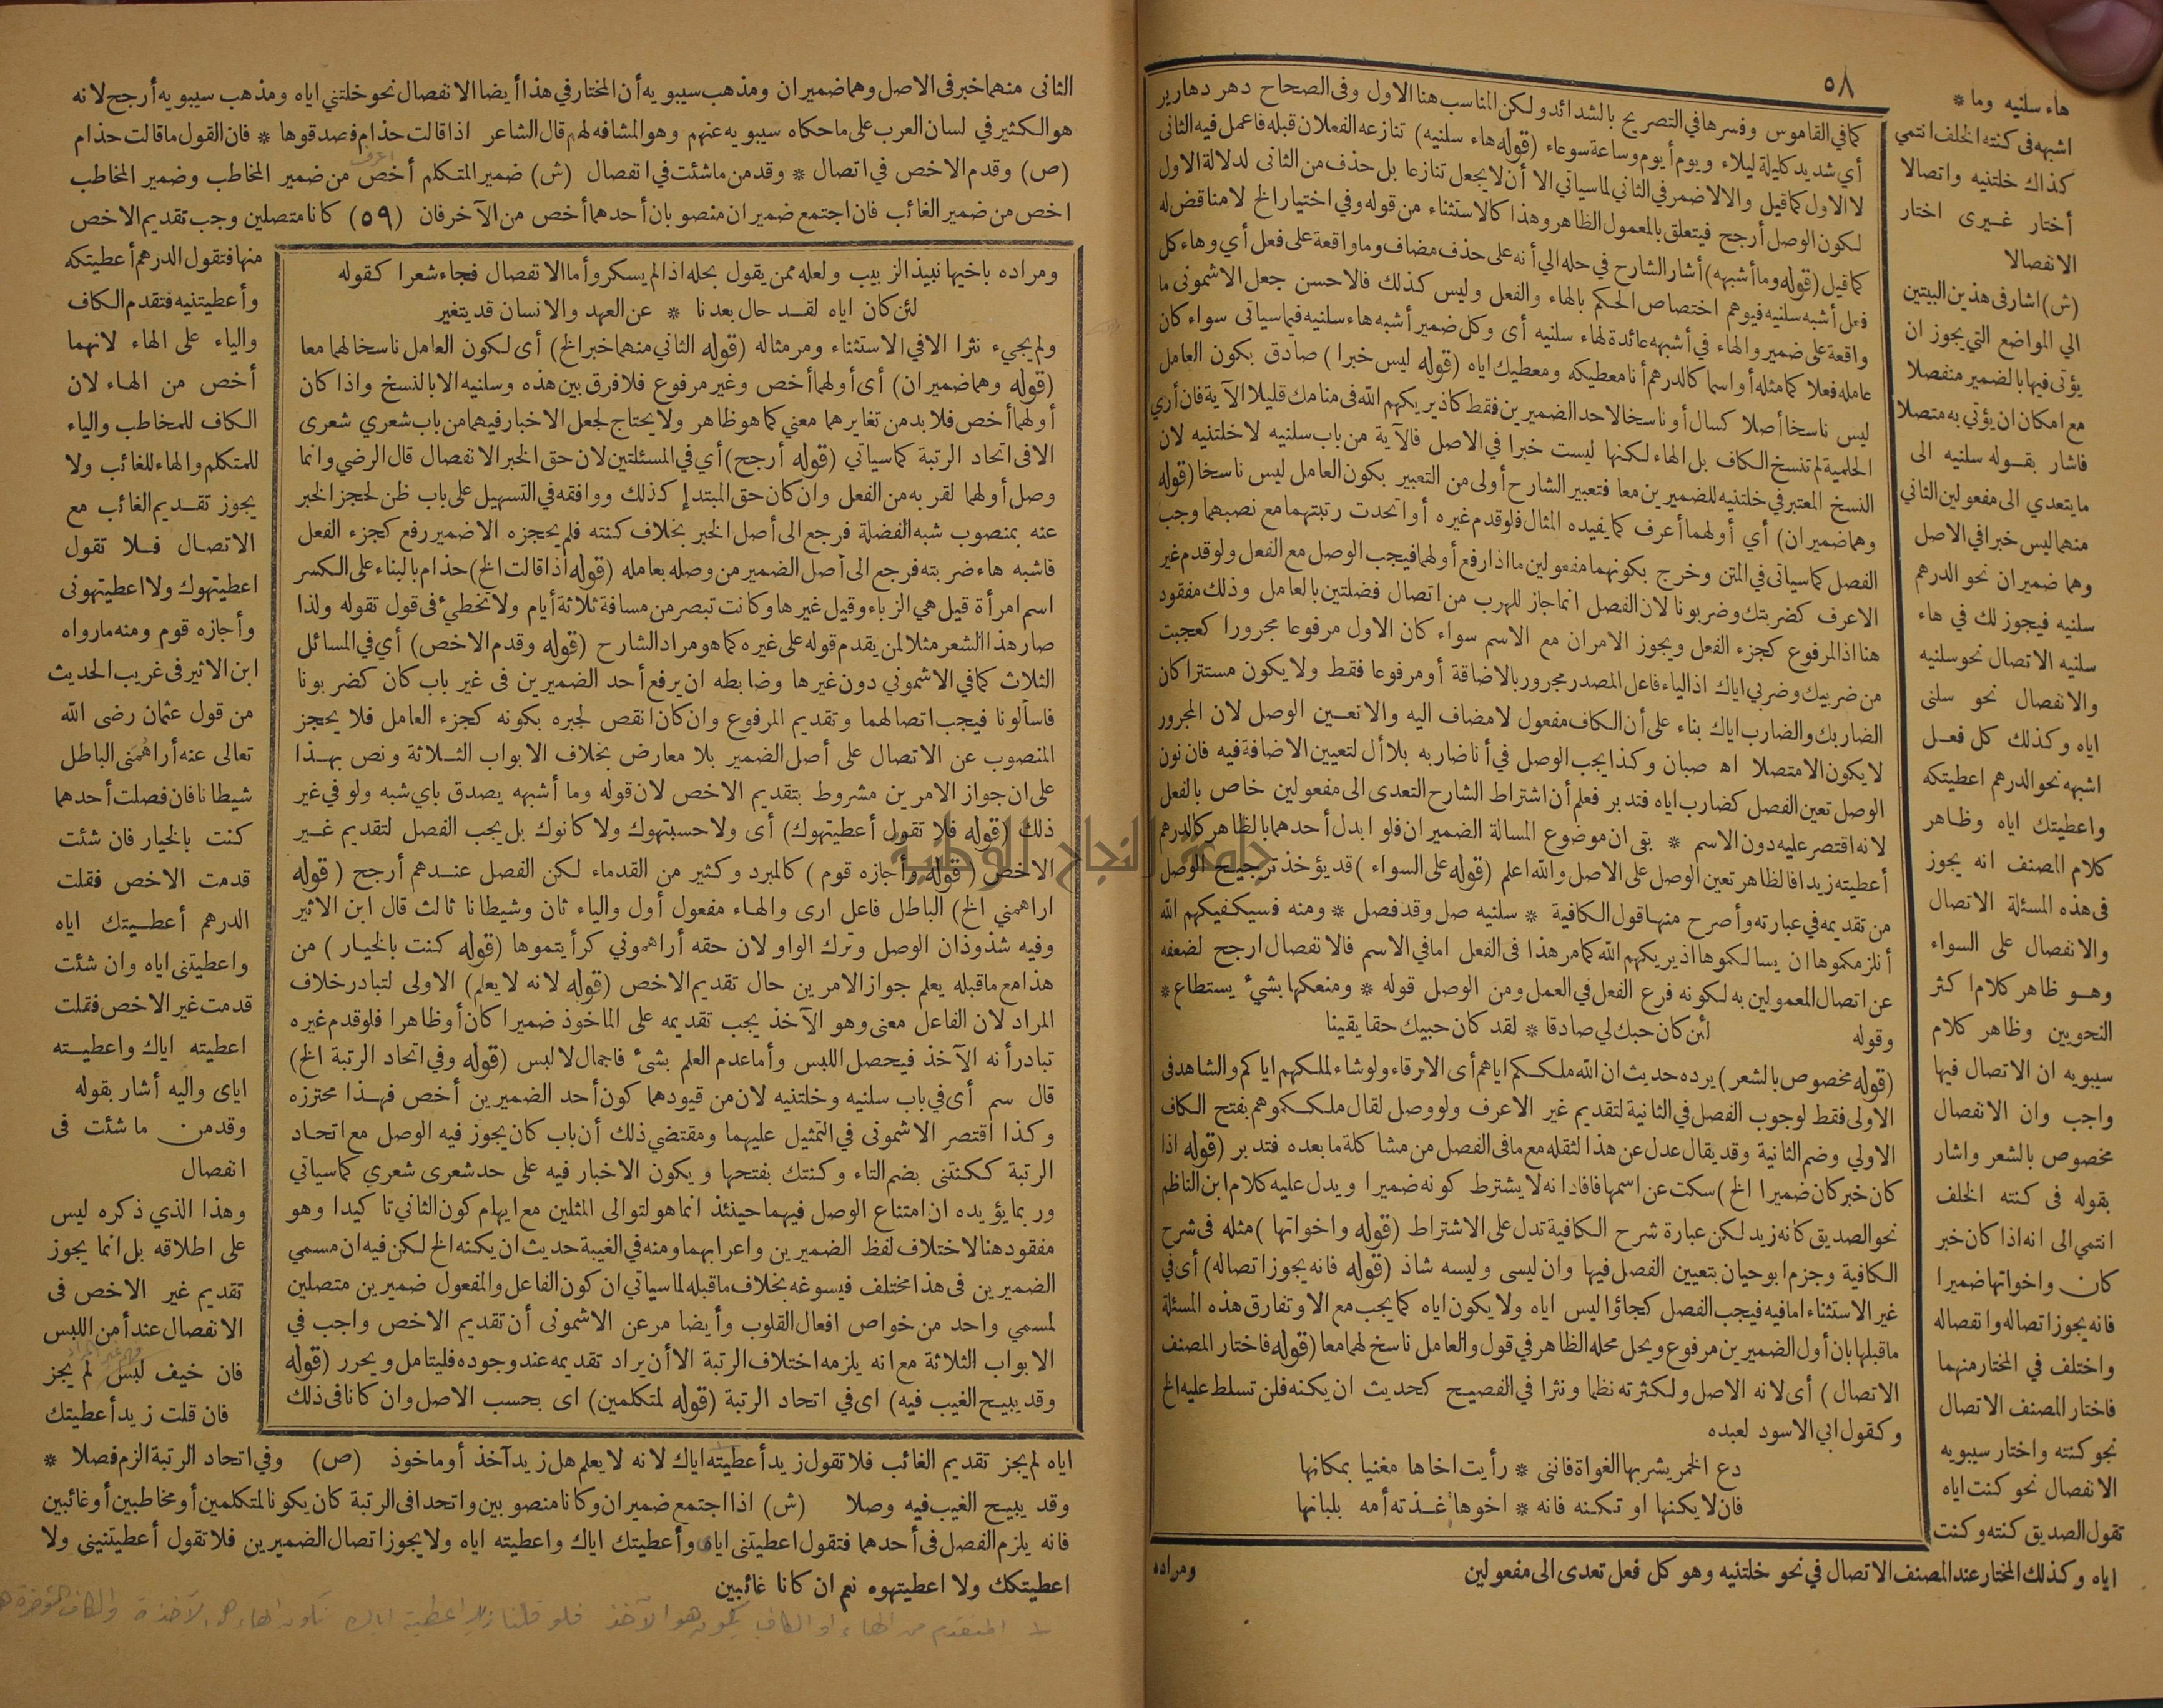 ٥٨
هاء سلنيه وما *
اشبهه فى كنته الخلف انتمي
كذاك خلتنيه واتصالا
أختار غيرى اختار
الانفصالا
(ش) اشار فى هذين البيتين
الي المواضع التي يجوز ان
يؤتى فيها بالضمير منفصلا
مع امكان ان يؤتي به متصلا
فاشار بقوله سلنيه الى
ما يتعدي الى مفعولين الثاني
منهما ليس خبرا في الاصل
وهما ضميران نحو الدرهم
سلنيه فيجوز لك في هاء
سلنيه الاتصال نحو سلنيه
والانفصال نحو سلنى
اياه وكذلك كل فعل
اشبهه نحو الدرهم اعطيتكه
واعطيتك اياه وظاهر
كلام المصنف انه يجوز
فى هذه المسئلة الاتصال
والانفصال على السواء
وهو ظاهر كلام اكثر
النحويين وظاهر كلام
سيبويه ان الاتصال فيها
واجب وان الانفصال
مخصوص بالشعر واشار
بقوله فى كنته الخلف
انتمي الى انه اذا كان خبر
كان واخواتها ضميرا
فانه يجوز اتصاله وانفصاله
واختلف في المختار منهما
فاختار المصنف الاتصال
نحو كنته واختار سيبويه
الانفصال نحو كنت اياه
تقول الصديق كنته وكنت
كما في القاموس وفسرها في التصريح بالشدائد ولكن المناسب هنا الاول وفى الصحاح دهر دهارير
أي شديد كليلة ليلاء ويوم أيوم وساعة سوعاء (قوله هاء سلنيه) تنازعه الفعلان قبله فاعمل فيه الثانى
لا الاول كما قيل والالاضمر في الثاني لما سياتي الا أن لا يجعل تنازعا بل حذف من الثانى لدلالة الاول
لكون الوصل أرجح فيتعلق بالمعمول الظاهر وهذا كالاستثناء من قوله وفي اختيار الخ لا مناقض له
كما قيل (قوله وما أشبهه) أشار الشارح في حله الي أنه على حذف مضاف وما واقعة على فعل أي وهاء كل
فعل أشبه سلنيه فيوهم اختصاص الحكم بالهاء والفعل وليس كذلك فالاحسن جعل الاشمونى ما
واقعة على ضمير والهاء في أشبهه عائدة لهاء سلنيه أى وكل ضمير أشبه هاء سلنيه فيما سياتى سواء كان
عامله فعلا كما مثله أو اسما كالدرهم أنا معطيكه ومعطيك اياه (قوله ليس خبرا) صادق بكون العامل
ليس ناسخا أصلا كسال أو ناسخا لاحد الضميرين فقط كاذ يريكهم الله فى منامك قليلا الآية فان أري
الحلمية لم تنسخ الكاف بل الهاء لكنها ليست خبرا في الاصل فالآية من باب سلنيه لا خلتنيه لان
النسخ المعتبر في خلتنيه للضميرين معا فتعبير الشارح أولى من التعبير بكون العامل ليس ناسخا (قوله
وهما ضميران) أي أولهما أعرف كما يفيده المثال فلو قدم غيره أو اتحدت رتبتهما مع نصبهما وجب
الفصل كما سياتى في المتن وخرج بكونهما مفعولين ما اذا رفع أولهما فيجب الوصل مع الفعل ولو قدم غير
الاعرف كضربتك وضربونا لان الفصل انما جاز للهرب من اتصال فضلتين بالعامل وذلك مفقود
هنا اذ المرفوع كجزء الفعل ويجوز الامران مع الاسم سواء كان الاول مرفوعا مجرورا كعجبت
من ضربيك وضربي اياك اذ الياء فاعل المصدر مجرور بالاضافة أو مرفوعا فقط ولا يكون مستترا كان
الضاربك والضارب اياك بناء على أن الكاف مفعول لا مضاف اليه والا تعين الوصل لان المجرور
لا يكون الا متصلا اه صبان وكذا يجب الوصل في أنا ضاربه بلا أل لتعيين الاضافة فيه فان نون
الوصل تعين الفصل كضارب اياه فتدبر فعلم أن اشتراط الشارح التعدى الى مفعولين خاص بالفعل
لانه اقتصر عليه دون الاسم * بقى ان موضوع المسالة الضميران فلو ابدل أحدهما بالظاهر كالدرهم
أعطيته زيدا فالظاهر تعين الوصل على الاصل والله اعلم (قوله على السواء) قد يؤخذ ترجيح الوصل
من تقديمه في عبارته وأصرح منها قول الكافية * سلنيه صل وقد فصل * ومنه فسيكفيكهم الله
أنلزمكموها ان يسالكموها اذ يريكهم الله كما مر هذا فى الفعل اما في الاسم فالانفصال ارجح لضعفه
عن اتصال المعمولين به لكونه فرع الفعل في العمل ومن الوصل قوله * ومنعكها بشيء يستطاع *
وقوله لئن كان حبك لي صادقا * لقد كان حبيك حقا يقينا
(قوله مخصوص بالشعر) يرده حديث ان الله ملككم اياهم أى الارقاء ولو شاء لملكهم اياكم والشاهد فى
الاولى فقط لوجوب الفصل في الثانية لتقديم غير الاعرف ولو وصل لقال ملككموهم بفتح الكاف
الاولي وضم الثانية وقد يقال عدل عن هذا لثقله مع ما فى الفصل من مشاكلة ما بعده فتدبر (قوله اذا
كان خبر كان ضميرا الخ) سكت عن اسمها فافاد انه لا يشترط كونه ضميرا ويدل عليه كلام ابن الناظم
نحو الصديق كانه زيد لكن عبارة شرح الكافية تدل على الاشتراط (قوله واخواتها) مثله فى شرح
الكافية وجزم ابو حيان بتعيين الفصل فيها وان ليسى وليسه شاذ (قوله فانه يجوز اتصاله) أى في
غير الاستثناء اما فيه فيجب الفصل كجاؤا ليس اياه ولا يكون اياه كما يجب مع الا وتفارق هذه المسئلة
ما قبلها بان أول الضميرين مرفوع ويحل محله الظاهر في قول والعامل ناسخ لهما معا (قوله فاختار المصنف
الاتصال) أى لانه الاصل ولكثرته نظما ونثرا في الفصيح كحديث ان يكنه فلن تسلط عليه الخ
وكقول ابي الاسود لعبده
دع الخمر يشربها الغواة فاننى * رأيت اخاها مغنيا بمكانها
فان لا يكنها او تكنه فانه * اخوها غذته أمه بلبانها
اياه وكذلك المختار عند المصنف الاتصال في نحو خلتنيه وهو كل فعل تعدى الى مفعولين
ومراده
الثانى منهما خبر فى الاصل وهما ضميران ومذهب سيبويه أن المختار في هذا أيضا الانفصال نحو خلتني اياه ومذهب سيبويه أرجح لانه
هو الكثير في لسان العرب على ما حكاه سيبويه عنهم وهو المشافه لهم قال الشاعر اذا قالت حذام فصدقوها * فان القول ما قالت حذام
(ص) وقدم الاخص في اتصال * وقدمن ما شئت في انفصال (ش) ضمير المتكلم أخص من ضمير المخاطب وضمير المخاطب
اعرف
اخص من ضمير الغائب فان اجتمع ضميران منصوبان أحدهما أخص من الآخر فان (٥٩) كانا متصلين وجب تقديم الاخص
منها فتقول الدرهم أعطيتكه
وأعطيتنيه فتقدم الكاف
والياء على الهاء لانهما
أخص من الهاء لان
الكاف للمخاطب والياء
للمتكلم والهاء للغائب ولا
يجوز تقديم الغائب مع
الاتصال فلا تقول
اعطيتهوك ولا اعطيتهونى
وأجازه قوم ومنه ما رواه
ابن الاثير فى غريب الحديث
من قول عثمان رضى الله
تعالى عنه أراهمنى الباطل
شيطانا فان فصلت أحدهما
كنت بالخيار فان شئت
قدمت الاخص فقلت
الدرهم أعطيتك اياه
واعطيتنى اياه وان شئت
قدمت غير الاخص فقلت
اعطيته اياك واعطيته
اياى واليه أشار بقوله
وقدمن ما شئت فى
انفصال
وهذا الذي ذكره ليس
على اطلاقه بل انما يجوز
تقديم غير الاخص فى
الانفصال عند أمن اللبس
فان خيف لبس لم يجز
فان قلت زيد أعطيتك
ومراده باخيها نبيذ الزبيب ولعله ممن يقول بحله اذا لم يسكر وأما الانفصال فجاء شعرا كقوله
لئن كان اياه لقد حال بعدنا * عن العهد والانسان قد يتغير
ولم يجيء نثرا الا في الاستثناء ومر مثاله (قوله الثاني منهما خبر الخ) أى لكون العامل ناسخا لهما معا
(قوله وهما ضميران) أى أولهما أخص وغير مرفوع فلا فرق بين هذه وسلنيه الا بالنسخ واذا كان
أولهما أخص فلا بد من تغايرهما معنى كما هو ظاهر ولا يحتاج لجعل الاخبار فيهما من باب شعري شعرى
الا فى اتحاد الرتبة كما سياتي (قوله أرجح) أي في المسئلتين لان حق الخبر الانفصال قال الرضي وانما
وصل أولهما لقربه من الفعل وان كان حق المبتدإ كذلك ووافقه في التسهيل على باب ظن لحجز الخبر
عنه بمنصوب شبه الفضلة فرجع الى أصل الخبر بخلاف كنته فلم يحجزه الا ضمير رفع كجزء الفعل
فاشبه هاء ضربته فرجع الى أصل الضمير من وصله بعامله (قوله اذا قالت الخ) حذام بالبناء على الكسر
اسم امرأة قيل هي الزباء وقيل غيرها وكانت تبصر من مسافة ثلاثة أيام ولا تخطيء فى قول تقوله ولذا
صار هذا الشعر مثلا لمن يقدم قوله على غيره كما هو مراد الشارح (قوله وقدم الاخص) أي في المسائل
الثلاث كما في الاشموني دون غيرها وضابطه ان يرفع أحد الضميرين فى غير باب كان كضربونا
فاسألونا فيجب اتصالهما وتقديم المرفوع وان كان انقص لجبره بكونه كجزء العامل فلا يحجز
المنصوب عن الاتصال على أصل الضمير بلا معارض بخلاف الابواب الثلاثة ونص بهذا
على ان جواز الامرين مشروط بتقديم الاخص لان قوله وما أشبهه يصدق باي شبه ولو في غير
ذلك (قوله فلا تقول أعطيتهوك) أى ولا حسبتهوك ولا كانوك بل يجب الفصل لتقديم غير
الاخص (قوله وأجازه قوم) كالمبرد وكثير من القدماء لكن الفصل عندهم أرجح (قوله
اراهمني الخ) الباطل فاعل ارى والهاء مفعول أول والياء ثان وشيطانا ثالث قال ابن الاثير
وفيه شذوذان الوصل وترك الواو لان حقه أراهموني كرأيتموها (قوله كنت بالخيار) من
هذا مع ما قبله يعلم جواز الامرين حال تقديم الاخص (قوله لانه لا يعلم) الاولى لتبادر خلاف
المراد لان الفاعل معنى وهو الآخذ يجب تقديمه على الماخوذ ضميرا كان أو ظاهرا فلو قدم غيره
تبادر أنه الآخذ فيحصل اللبس وأما عدم العلم بشئ فاجمال لا لبس (قوله وفي اتحاد الرتبة الخ)
قال سم أى في باب سلنيه وخلتنيه لان من قيودهما كون أحد الضميرين أخص فهذا محترزه
وكذا اقتصر الاشمونى في التمثيل عليهما ومقتضي ذلك أن باب كان يجوز فيه الوصل مع اتحاد
الرتبة ككنتنى بضم التاء وكنتك بفتحها ويكون الاخبار فيه على حد شعرى شعري كما سياتي
وربما يؤيده ان امتناع الوصل فيهما حينئذ انما هو لتوالى المثلين مع ايهام كون الثاني تاكيدا وهو
مفقود هنا لاختلاف لفظ الضميرين واعرابهما ومنه في الغيبة حديث ان يكنه الخ لكن فيه ان مسمي
الضميرين فى هذا مختلف فيسوغه بخلاف ما قبله لما سياتي ان كون الفاعل والمفعول ضميرين متصلين
لمسمي واحد من خواص افعال القلوب وأيضا مر عن الاشمونى أن تقديم الاخص واجب في
الابواب الثلاثة مع انه يلزمه اختلاف الرتبة الا أن يراد تقديمه عند وجوده فليتامل ويحرر (قوله
وقد يبيح الغيب فيه) اى في اتحاد الرتبة (قوله لمتكلمين) اى بحسب الاصل وان كانا فى ذلك
اياه لم يجز تقديم الغائب فلا تقول زيد أعطيته اياك لانه لا يعلم هل زيد آخذ أو ماخوذ (ص) وفى اتحاد الرتبة الزم فصلا *
وقد يبيح الغيب فيه وصلا (ش) اذا اجتمع ضميران وكانا منصوبين واتحدا فى الرتبة كان يكونا لمتكلمين أو مخاطبين أو غائبين
فانه يلزم الفصل فى أحدهما فتقول اعطيتنى اياى وأعطيتك اياك واعطيته اياه ولا يجوز اتصال الضميرين فلا تقول أعطيتنينى ولا
اعطيتكك ولا اعطيتهوه نعم ان كانا غائبين
جامعة النجاح الوطنية